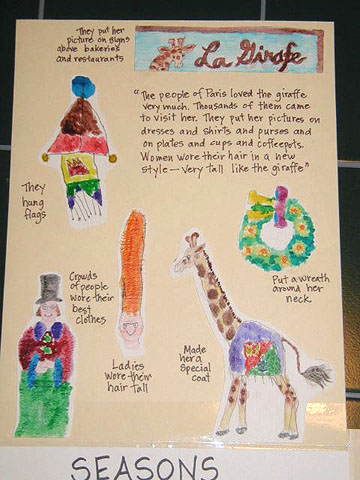 They put her
picture on signs
above bakeries
and restaurants
La Girafe
"The people of Paris loved the giraffe
very much. Thousands of them came
to visit her. They put her pictures on
dresses and shirts and purses and
on plates and cups and coffeepots.
Women wore their hair in a new
style—very tall like the giraffe"
They
hung
flags
Crowds
of people
wore their
best
clothes
Ladies
wore their
hair tall
Made
her a
special
coat
Put a wreath
around her
neck
SEASONS